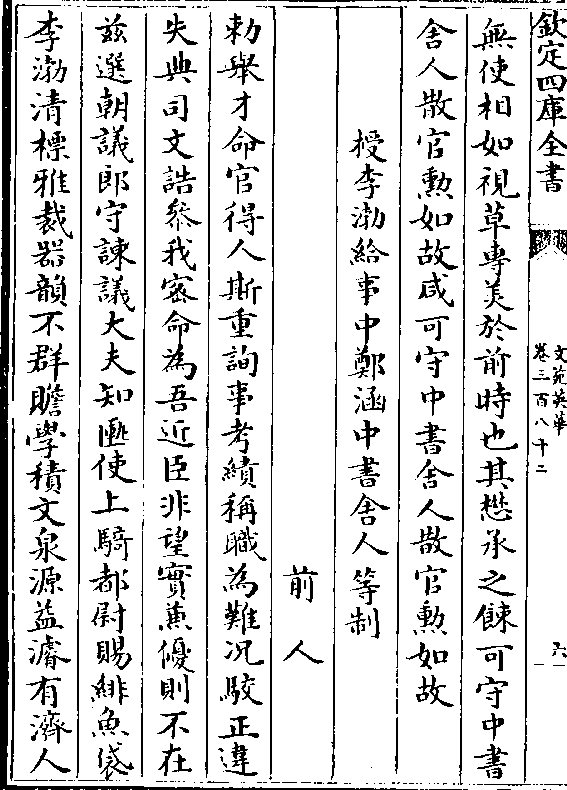 欽定四庫全書
文苑英華
卷三百八十二
六
無使相如視草專美於前時也其懋承之餗可守中書
舍人散官勲如故咸可守中書舍人散官勲如故
授李渤給事中鄭涵中書舍人等制
前人
勅舉才命官得人斯重詢事考績稱職為難况駮正違
失典司文誥叅我密命為吾近臣非望實蕙優則不在
兹選朝議郎守諫議大夫知匭使上騎都尉賜緋魚袋
李渤清標雅裁器韻不群贍學積文泉源益濬有濟人